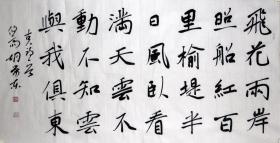 飛花兩岸
照船紅百
里榆堤半
日風臥看
滿天雲不
動不知雲
與我俱東